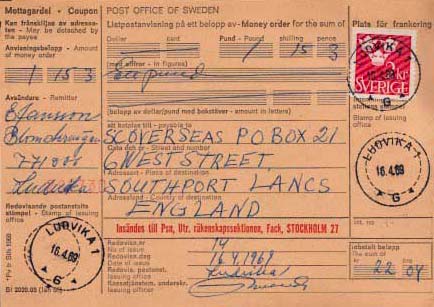 Mottagardel - Coupon
Kan frånskiljas av adressaten - May be detached by the payee
Anvisningsbelopp - Amount of money order
1 15 3
Avsändare - Remitter
Ludvika
Redovisande postanstalts stämpel - Stamp of issuing office
LUDVIKA 1
16.4.69
G
POST OFFICE OF SWEDEN
Listpostanvisning på ett belopp av - Money order for the sum of
Dollar
cent
Pund - Pound
shilling
pence
1 15 3
(med siffror - in figures)
Ett pund
(belopp av dollar/pund med bokstäver - amount in letters)
att betalas till - payable to
S.OVERSEAS P O BOX 21
Street and number
6 WEST STREET
Place of destination
SOUTHPORT LANCS
Country of destination
ENGLAND
Insändes till Psa, Utr. räkenskapssektionen, Fack, STOCKHOLM 27
Redovisn.nr
14
Redovisn.dag
Date of issue
16/4 1969
Redovisn. postanst.
Issuing office
Ludvika
Plats för frankering
LUDVIKA 1
16.4.69
G
SVERIGE
Stamp of issuing office
LUDVIKA 1
16.4.69
G
Inbetalt belopp
The sum of
kr
22 04